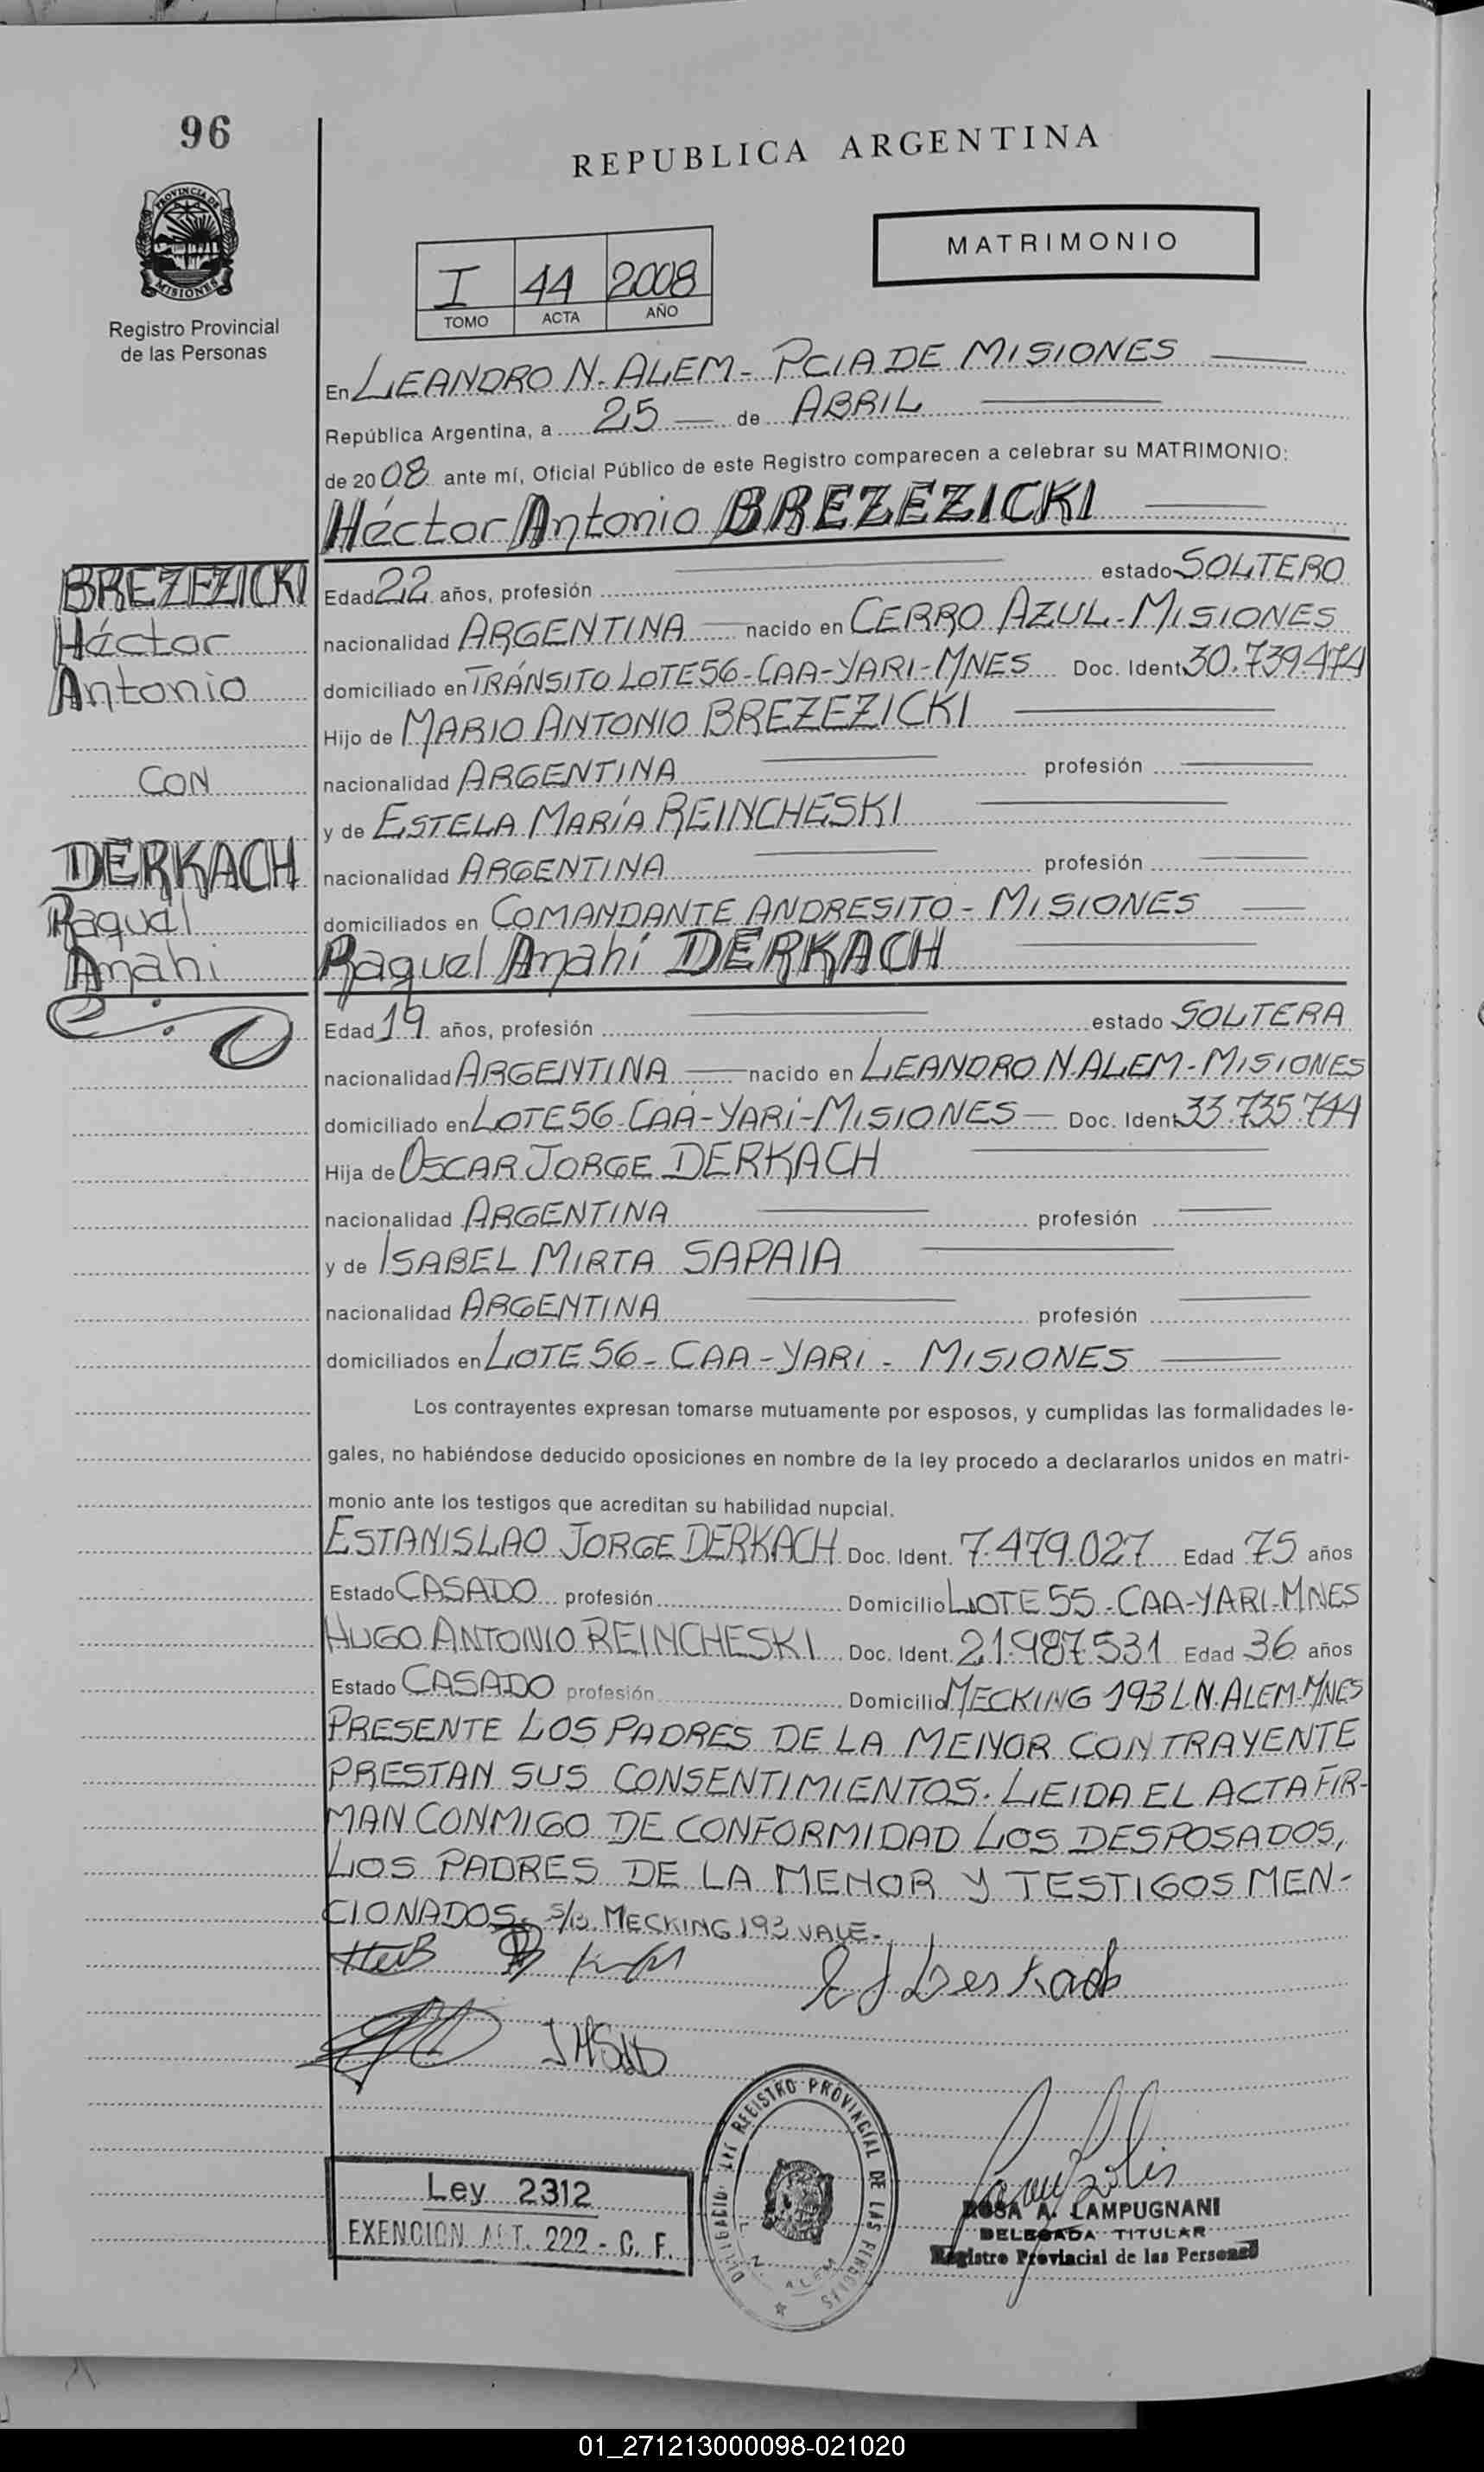 96
REPUBLICA ARGENTINA
PROVINCIA DE
MISIONES
Registro Provincial
de las Personas
MATRIMONIO
I 44 2008
TOMO ACTA AÑO
En LEANDRO N. ALEM - PCIA DE MISIONES
República Argentina, a 25 de ABRIL
de 2008 ante mí, Oficial Público de este Registro comparecen a celebrar su MATRIMONIO:
Héctor Antonio BREZEZICKI
BREZEZICKI
Héctor
Antonio
CON
DERKACH
Raquel
Anahi
Edad 22 años, profesión estado SOLTERO
nacionalidad ARGENTINA nacido en CERRO AZUL - MISIONES
domiciliado en TRÁNSITO LOTE 56 - CAA-YARI - MNES Doc. Ident. 30.739.474
Hijo de MARIO ANTONIO BREZEZICKI
nacionalidad ARGENTINA profesión
y de ESTELA MARÍA REINCHESKI
nacionalidad ARGENTINA profesión
domiciliados en COMANDANTE ANDRESITO - MISIONES
Raquel Anahi DERKACH
Edad 19 años, profesión estado SOLTERA
nacionalidad ARGENTINA nacido en LEANDRO N. ALEM - MISIONES
domiciliado en LOTE 56 - CAA-YARI - MISIONES Doc. Ident. 33.735.744
Hija de OSCAR JORGE DERKACH
nacionalidad ARGENTINA profesión
y de ISABEL MIRTA SAPAIA
nacionalidad ARGENTINA profesión
domiciliados en LOTE 56 - CAA-YARI - MISIONES
Los contrayentes expresan tomarse mutuamente por esposos, y cumplidas las formalidades le-
gales, no habiéndose deducido oposiciones en nombre de la ley procedo a declararlos unidos en matri-
monio ante los testigos que acreditan su habilidad nupcial.
ESTANISLAO JORGE DERKACH Doc. Ident. 7.479.027 Edad 75 años
Estado CASADO profesión Domicilio LOTE 55 - CAA-YARI - MNES
HUGO ANTONIO REINCHESKI Doc. Ident. 21.987.531 Edad 36 años
Estado CASADO profesión Domicilio MECKING 193 L.N. ALEM - MNES
PRESENTE LOS PADRES DE LA MENOR CONTRAYENTE
PRESTAN SUS CONSENTIMIENTOS. LEIDA EL ACTA FIR-
MAN CONMIGO DE CONFORMIDAD LOS DESPOSADOS,
LOS PADRES DE LA MENOR Y TESTIGOS MEN-
CIONADOS. S/B. MECKING 193 VALE.-
Ley 2312
EXENCION ART. 222 - C. F.
REGISTRO PROVINCIAL DE LAS PERSONAS
ROSA A. LAMPUGNANI
DELEGADA TITULAR
Registro Provincial de las Personas
01_271213000098-021020